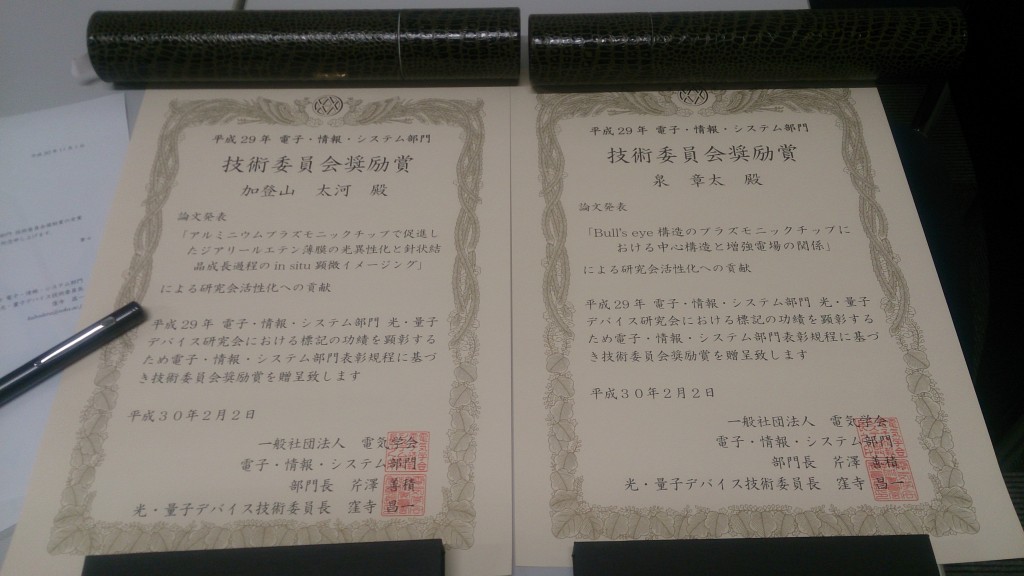 平成29年 電子・情報・システム部門
技術委員会奨励賞
加登山 太河 殿
論文発表
「アルミニウムプラズモニックチップで促進し
たジアリールエテン薄膜の光異性化と針状結
晶成長過程の in situ 顕微イメージング」
による研究会活性化への貢献
平成29年 電子・情報・システム部門 光・量子
デバイス研究会における標記の功績を顕彰する
ため電子・情報・システム部門表彰規程に基づ
き技術委員会奨励賞を贈呈致します
平成30年2月2日
一般社団法人 電気学会
電子・情報・システム部門
部門長 芹澤 善積
光・量子デバイス技術委員長 窪寺 昌一
平成29年 電子・情報・システム部門
技術委員会奨励賞
泉 章太 殿
論文発表
「Bull's eye 構造のプラズモニックチップに
おける中心構造と増強電場の関係」
による研究会活性化への貢献
平成29年 電子・情報・システム部門 光・量子
デバイス研究会における標記の功績を顕彰する
ため電子・情報・システム部門表彰規程に基づ
き技術委員会奨励賞を贈呈致します
平成30年2月2日
一般社団法人 電気学会
電子・情報・システム部門
部門長 芹澤 善積
光・量子デバイス技術委員長 窪寺 昌一